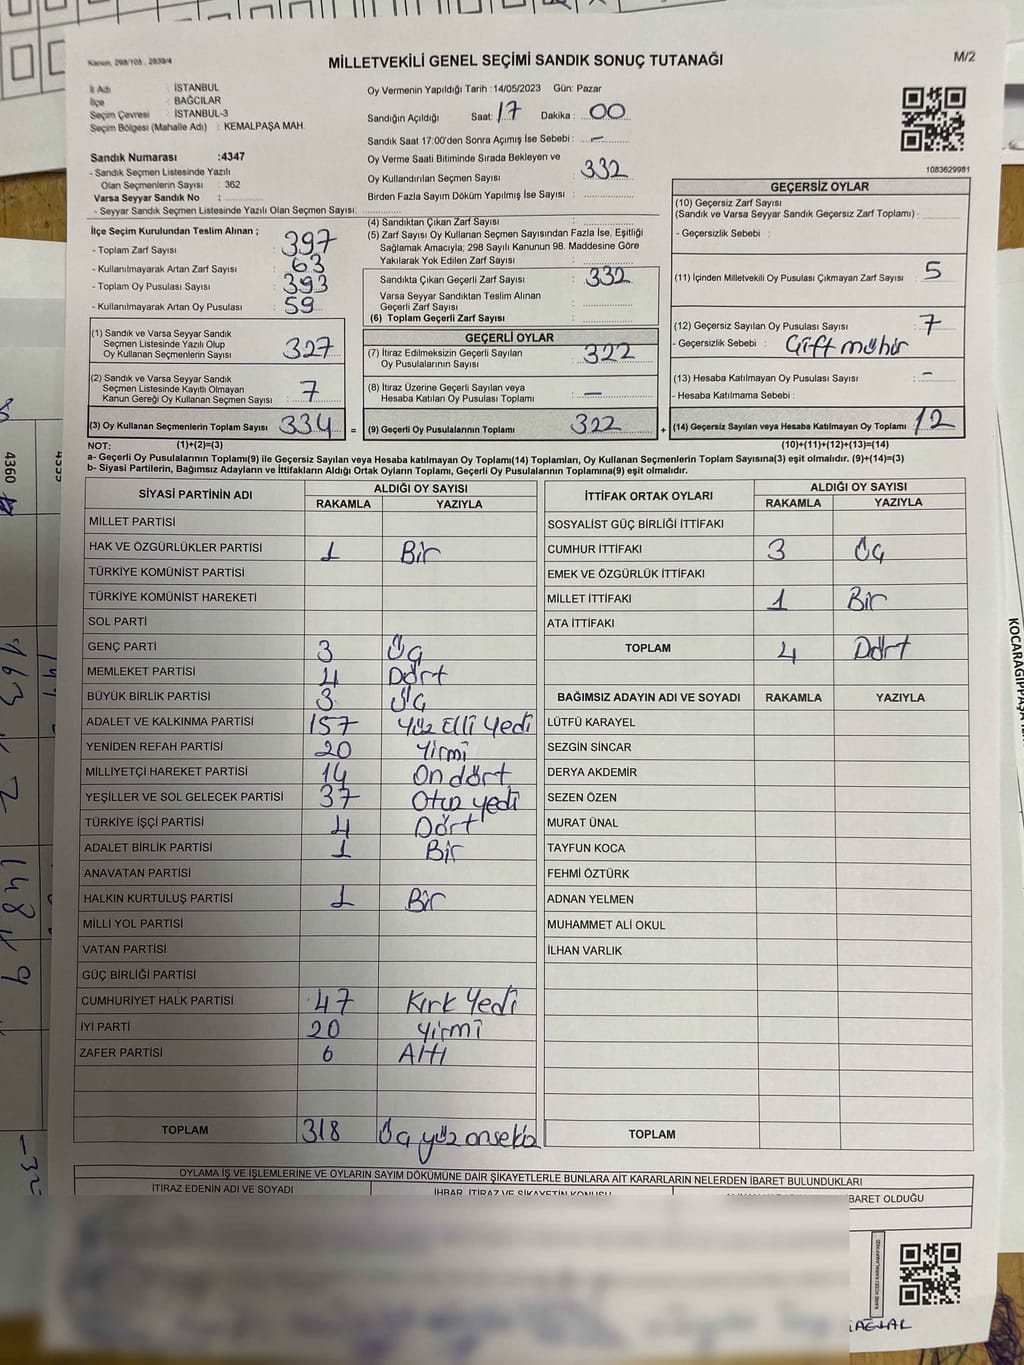 Kanun, 298/105, 2839/4
MİLLETVEKİLİ GENEL SEÇİMİ SANDIK SONUÇ TUTANAĞI
M/2
İl Adı : İSTANBUL
İlçe : BAĞCILAR
Seçim Çevresi : İSTANBUL-3
Seçim Bölgesi (Mahalle Adı) : KEMALPAŞA MAH.
Sandık Numarası :4347
- Sandık Seçmen Listesinde Yazılı
Olan Seçmenlerin Sayısı : 362
Varsa Seyyar Sandık No :
- Seyyar Sandık Seçmen Listesinde Yazılı Olan Seçmen Sayısı:
İlçe Seçim Kurulundan Teslim Alınan ;
- Toplam Zarf Sayısı : 397
- Kullanılmayarak Artan Zarf Sayısı : 63
- Toplam Oy Pusulası Sayısı : 393
- Kullanılmayarak Artan Oy Pusulası : 59
(1) Sandık ve Varsa Seyyar Sandık
Seçmen Listesinde Yazılı Olup
Oy Kullanan Seçmenlerin Sayısı : 327
(2) Sandık ve Varsa Seyyar Sandık
Seçmen Listesinde Kayıtlı Olmayan
Kanun Gereği Oy Kullanan Seçmen Sayısı : 7
(3) Oy Kullanan Seçmenlerin Toplam Sayısı : 334 =
Oy Vermenin Yapıldığı Tarih :14/05/2023 Gün: Pazar
Sandığın Açıldığı Saat: 17 Dakika : 00
Sandık Saat 17:00'den Sonra Açımış İse Sebebi : -
Oy Verme Saati Bitiminde Sırada Bekleyen ve
Oy Kullandırılan Seçmen Sayısı : 332
Birden Fazla Sayım Döküm Yapılmış İse Sayısı :
(4) Sandıktan Çıkan Zarf Sayısı :
(5) Zarf Sayısı Oy Kullanan Seçmen Sayısından Fazla İse, Eşitliği
Sağlamak Amacıyla; 298 Sayılı Kanunun 98. Maddesine Göre
Yakılarak Yok Edilen Zarf Sayısı :
Sandıkta Çıkan Geçerli Zarf Sayısı : 332
Varsa Seyyar Sandıktan Teslim Alınan
Geçerli Zarf Sayısı :
(6) Toplam Geçerli Zarf Sayısı :
GEÇERLİ OYLAR
(7) İtiraz Edilmeksizin Geçerli Sayılan
Oy Pusulalarının Sayısı : 322
(8) İtiraz Üzerine Geçerli Sayılan veya
Hesaba Katılan Oy Pusulası Toplamı : -
(9) Geçerli Oy Pusulalarının Toplamı : 322 +
1083629981
GEÇERSİZ OYLAR
(10) Geçersiz Zarf Sayısı
(Sandık ve Varsa Seyyar Sandık Geçersiz Zarf Toplamı) :
- Geçersizlik Sebebi :
(11) İçinden Milletvekili Oy Pusulası Çıkmayan Zarf Sayısı : 5
(12) Geçersiz Sayılan Oy Pusulası Sayısı : 7
- Geçersizlik Sebebi : Çift mühür
(13) Hesaba Katılmayan Oy Pusulası Sayısı : -
- Hesaba Katılmama Sebebi :
(14) Geçersiz Sayılan veya Hesaba Katılmayan Oy Toplamı : 12
NOT: (1)+(2)=(3) (10)+(11)+(12)+(13)=(14)
a- Geçerli Oy Pusulalarının Toplamı(9) ile Geçersiz Sayılan veya Hesaba katılmayan Oy Toplamı(14) Toplamları, Oy Kullanan Seçmenlerin Toplam Sayısına(3) eşit olmalıdır. (9)+(14)=(3)
b- Siyasi Partilerin, Bağımsız Adayların ve İttifakların Aldığı Ortak Oyların Toplamı, Geçerli Oy Pusulalarının Toplamına(9) eşit olmalıdır.
SİYASİ PARTİNİN ADI ALDIĞI OY SAYISI
RAKAMLA YAZIYLA
MİLLET PARTİSİ
HAK VE ÖZGÜRLÜKLER PARTİSİ 1 Bir
TÜRKİYE KOMÜNİST PARTİSİ
TÜRKİYE KOMÜNİST HAREKETİ
SOL PARTİ
GENÇ PARTİ 3 Üç
MEMLEKET PARTİSİ 4 Dört
BÜYÜK BİRLİK PARTİSİ 3 Üç
ADALET VE KALKINMA PARTİSİ 157 Yüz Elli Yedi
YENİDEN REFAH PARTİSİ 20 Yirmi
MİLLİYETÇİ HAREKET PARTİSİ 14 On dört
YEŞİLLER VE SOL GELECEK PARTİSİ 37 Otuz yedi
TÜRKİYE İŞÇİ PARTİSİ 4 Dört
ADALET BİRLİK PARTİSİ 1 Bir
ANAVATAN PARTİSİ
HALKIN KURTULUŞ PARTİSİ 1 Bir
MİLLİ YOL PARTİSİ
VATAN PARTİSİ
GÜÇ BİRLİĞİ PARTİSİ
CUMHURİYET HALK PARTİSİ 47 Kırk Yedi
İYİ PARTİ 20 Yirmi
ZAFER PARTİSİ 6 Altı
TOPLAM 318 Üç yüz onsekiz
İTTİFAK ORTAK OYLARI ALDIĞI OY SAYISI
RAKAMLA YAZIYLA
SOSYALİST GÜÇ BİRLİĞİ İTTİFAKI
CUMHUR İTTİFAKI 3 Üç
EMEK VE ÖZGÜRLÜK İTTİFAKI
MİLLET İTTİFAKI 1 Bir
ATA İTTİFAKI
TOPLAM 4 Dört
BAĞIMSIZ ADAYIN ADI VE SOYADI RAKAMLA YAZIYLA
LÜTFÜ KARAYEL
SEZGİN SİNCAR
DERYA AKDEMİR
SEZEN ÖZEN
MURAT ÜNAL
TAYFUN KOCA
FEHMİ ÖZTÜRK
ADNAN YELMEN
MUHAMMET ALİ OKUL
İLHAN VARLIK
TOPLAM
OYLAMA İŞ VE İŞLEMLERİNE VE OYLARIN SAYIM DÖKÜMÜNE DAİR ŞİKAYETLERLE BUNLARA AİT KARARLARIN NELERDEN İBARET BULUNDUKLARI
İTİRAZ EDENİN ADI VE SOYADI İHBAR, İTİRAZ VE ŞİKAYETİN KONUSU İBARET OLDUĞU
4360
163
148